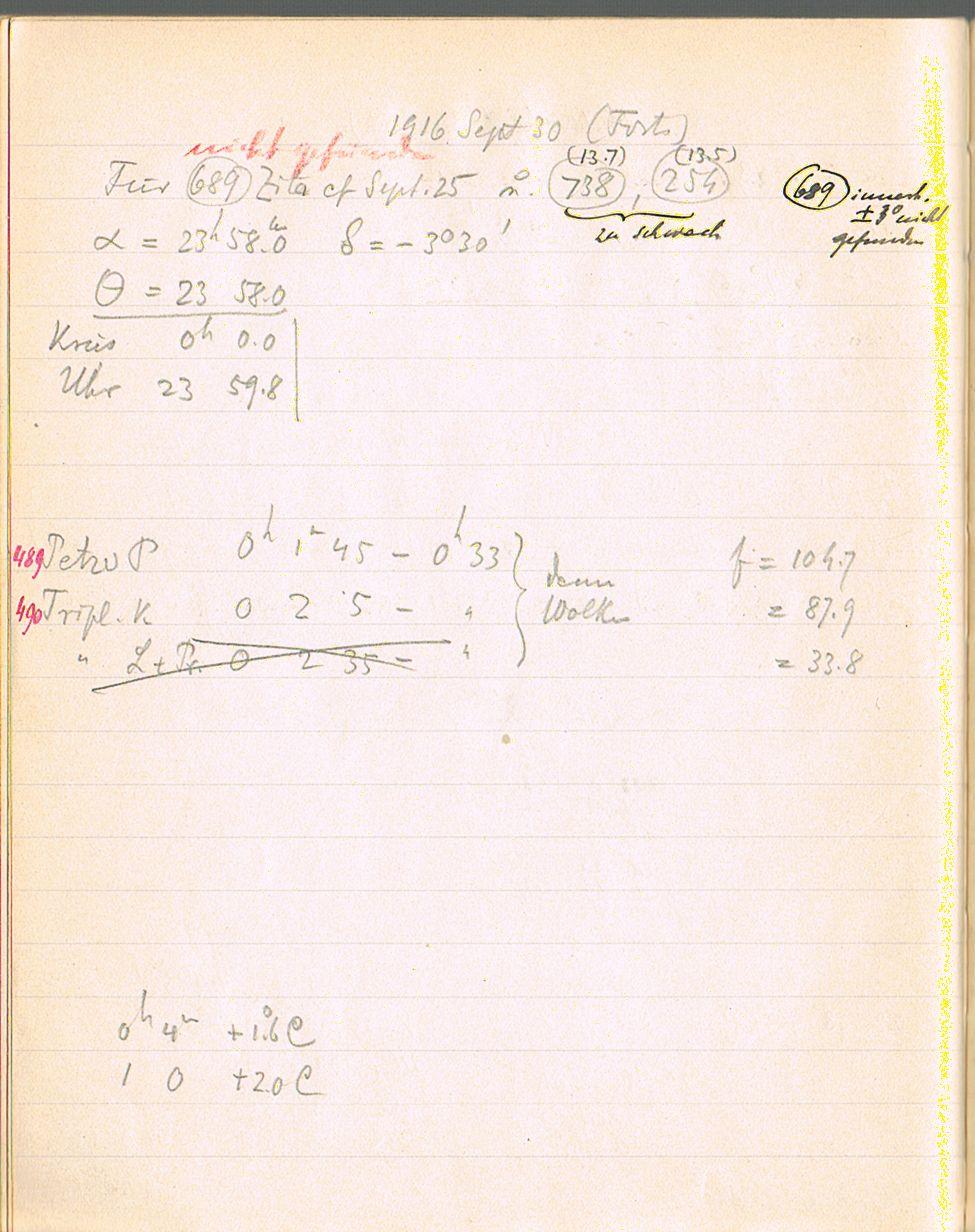 1916 Sept 30 (Forts)
nicht gefunden
(13.7) (13.5)
Für 689 Zita cf Sept. 25 u. 738, 254
zu schwach
689 innerh.
± 3° nicht
gefunden
α = 23h 58.0m δ = - 3°30'
θ = 23 58.0
Kreis 0h 0.0
Uhr 23 59.8
489 Petzv P 0h 1m 45 - 0h 33 f = 104.7
dann
490 Tripl. K 0 2 5 - " Wolken = 87.9
" L + Pr. 0 2 35 - " = 33.8
0h 4m + 1.°6 C
1 0 + 2.0 C